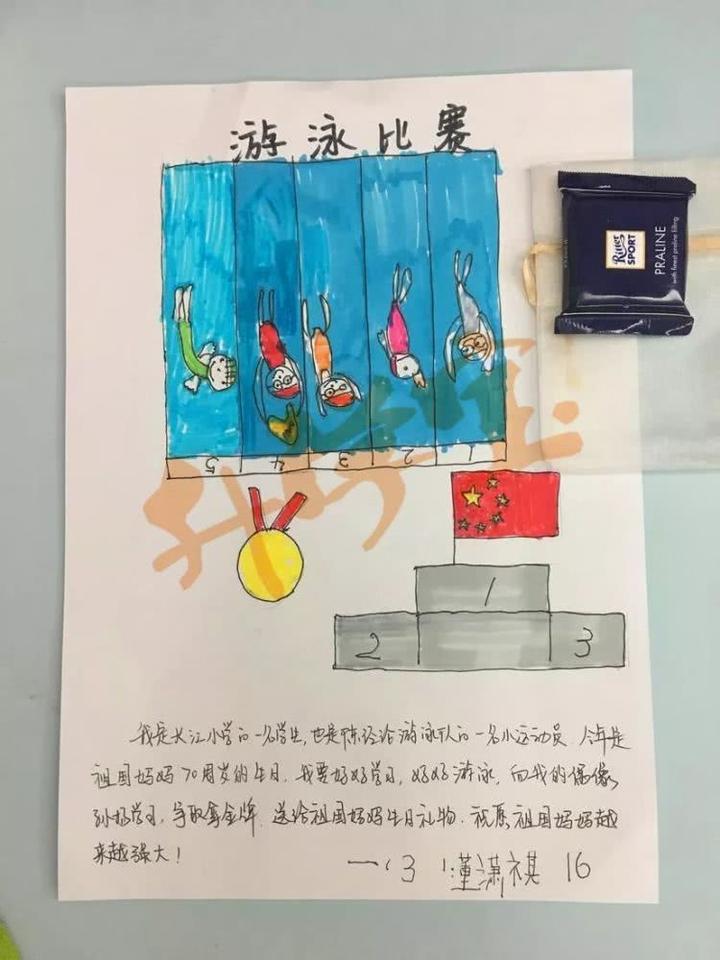 游泳比赛
Ritter
SPORT
PRALINE
with finest praline filling
5 4 3 2 1
1
2 3
我是长江小学的一名学生,也是陈经纶游泳队的一名小运动员.今年是
祖国妈妈70周岁的生日.我要好好学习,好好游泳,向我的偶像
孙杨学习,争取拿金牌.送给祖国妈妈生日礼物.祝愿祖国妈妈越
来越强大!
一、3 董潇祺 16